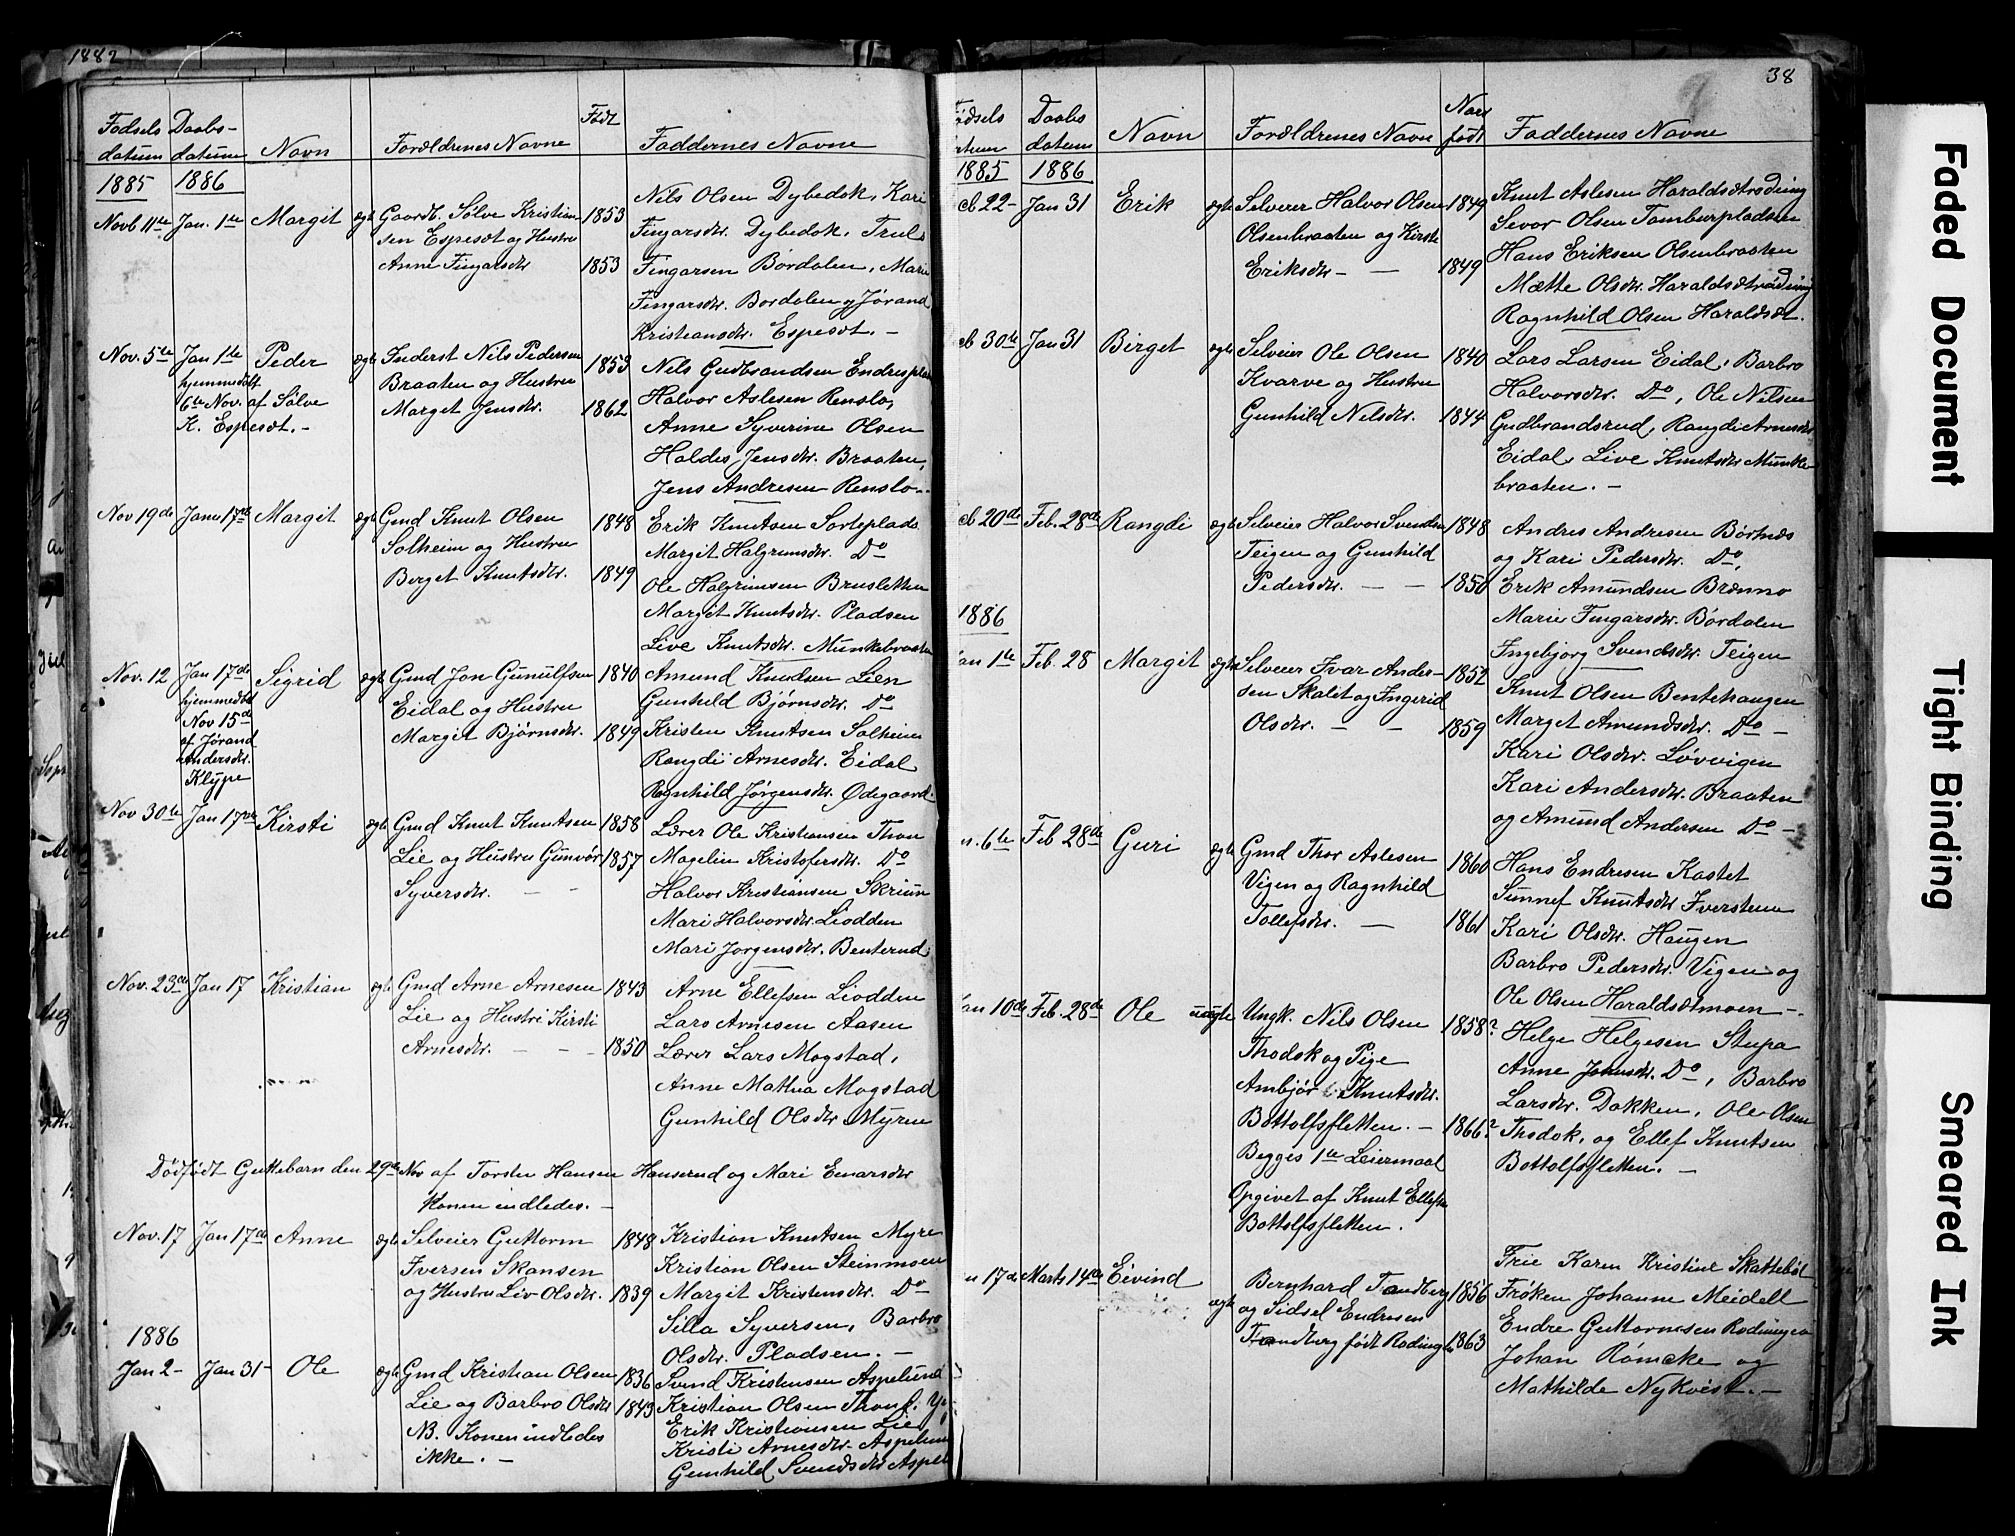 1882
Fødsels datum Daabs- datum Navn Forældrenes Navne Født Faddernes Navne
1885 1886
Novb 11te Jan. 1te Margit ægte Gaardb. Sølve Kristian- 1853 Nils Olsen Dybedok, Kari
sen Espesæt og Hustru Fingarsdtr. Dybedok, Truls
Anne Fingarsdtr 1853 Fingarsen Bordalen, Marie
Fingarsdtr. Bordalen og Jørand
Kristiansdtr. Espesæt. -
Nov. 5te Jan 1te Peder ægte Inderst Nils Pedersen 1853 Nils Gudbrandsen Endresplads
hjemmedøbt Braaten og Hustru Halvor Aslesen Renslo,
6te Nov. af Sølve Marget Jensdtr. 1862 Anne Syverine Olsen
K. Espesæt. - Haldis Jensdtr. Braaten,
Jens Andresen Renslo -
Nov 19de Janu 17de Margit ægte Gmd Knut Olsen 1848 Erik Knutsen Sorteplads
Solheim og Hustru Margit Halgrimsdtr. Do
Berget Knutsdtr. 1849 Ole Halgrimsen Brusletten
Marget Knutsdtr. Pladsen
Live Knutsdtr. Munkebraaten
Nov. 12 Jan 17de Sigrid ægte Gmd Jon Gunulfsen 1840 Amund Knudsen Lien
hjemmedøbt Eidal og Hustru Gunhild Bjørnsdtr. Do
Nov 15de Margit Bjørnsdtr. 1849 Kristen Knutsen Solheim
af Jørand Rangdi Arnesdtr. Eidal
Andersdtr. Ragnhild Jørgensdtr. Ødegaard
Klype
Nov 30te Jan 17de Kirsti ægte Gmd Knut Knutsen 1858 Lærer Ole Kristiansen Thon
Lie og Hustru Gunvør 1857 Magelin Kristofersdtr. Do
Syversdtr. - - Halvor Kristiansen Skriun
Mari Halvorsdtr. Liodden
Mari Jorgensdtr. Benterud
Nov. 23de Jan 17 Kristian ægte Gmd Arne Arnesen 1843 Arne Ellefsen Liodden
Lie og Hustri Kirsti Lars Arnesen Aasen
Arnesdtr. - - 1850 Lærer Lars Mogstad,
Anne Mathea Mogstad
Gunhild Olsdtr Myren
Dødfødt Guttebarn den 29de Nov af Torsten Hansen Hanserud og Mari Einarsdtr
Konen indledes. -
Nov. 17 Jan 17de Anne ægte Selveier Guttorm 1848 Kristian Knutsen Myre
Iversen Skansen Kristian Olsen Steinmoen
og Hustru Liv Olsdtr. 1839 Margit Kristensdtr. Do
Silla Syversen, Barbro
1886 Olsdtr. Pladsen. -
Jan 2- Jan 31- Ole ægte Gmd Kristian Olsen 1836 Svend Kristensen Aspelund
Lie og Barbro Olsdtr 1843 Kristian Olsen Thon
NB. Konen indledes Erik Kristiansen Lie
ikke. - Kristi Arnesdtr. Aspelun
Gunhild Svendsdtr Aspel
38
Fødsels datum Daabs datum Navn Forældrenes Navne Naar født Faddernes Navne
1885 1886
22- Jan 31 Erik ægte Selveier Halvor Olsen 1849 Knut Aslesen Haraldsætrødning
Olsenbraaten og Kirsti Sevor Olsen Tamburpladsen
Eriksdtr - - 1849 Hans Eriksen Olsenbraaten
Mætte Olsdtr. Haraldsætrødning
Ragnhild Olsen Haraldsæt.
30te Jan 31 Birget ægte Selveier Ole Olsen 1840 Lars Larsen Eidal, Barbro
Kvarve og Hustru Halvorsdtr. Do, Ole Nilsen
Gunhild Nilsdtr. 1844 Gudbrandsrud, Rangdi Arnesdtr
Eidal, Live Knutsdtr Munke-
braaten. -
20de Feb. 28de Rangdi ægte Selveier Halvor Svendsen 1848 Andres Andresen Børtnæs
Teigen og Gunhild og Kari Pedersdtr. Do,
Pedersdtr. - - 1850 Erik Amundsen Brenno
1886 Marie Fingarsdtr. Bórdalen
Ingebjorg Svendsdtr. Teigen
Jan 1te Feb. 28 Margit ægte Selveier Ivar Ander- 1852 Knut Olsen Bentehaugen
sen Skalet og Ingerid Marget Amundsdtr. Do -
Olsdtr. - - 1859 Kari Olsdtr. Løvvigen
Kari Andersdtr. Braaten
og Amund Andersen Do -
6te Feb 28de Guri ægte Gmd Thor Aslesen 1860 Hans Endresen Kastet
Vigen og Ragnhild Sunnef Knutsdtr Iverstuen
Tollefsdtr. - 1861 Kari Olsdtr. Haugen
Barbro Pedersdtr. Vigen og
Ole Olsen Haraldsætmoen -
Jan 10de Feb. 28de Ole uægte Ungk. Nils Olsen 1858? Helge Helgesen Stupa
Thodok og Pige Anne Johnsdtr. Do, Barbro
Ambjør Knutsdtr. Larsdtr. Dokken, Ole Olsen
Bottolfsfletten. - 1866? Thodok, og Ellef Knutsen
Begges 1te Leiermaal Bottolfsfletten. -
Opgivet af Knut Ellefsen
Bottolfsfletten.
17de Marts 14de Eivind ægte Bernhard Tandberg 1856 Frue Karen Kristine Skattebøl
og Sidsel Endresen Frøken Johanne Meidell
Tandberg født Rodningen 1863 Endre Guttormsen Rodningen
Johan Rømcke og
Mathilde Nykvist. -
Faded Document
Tight Binding
Smeared Ink